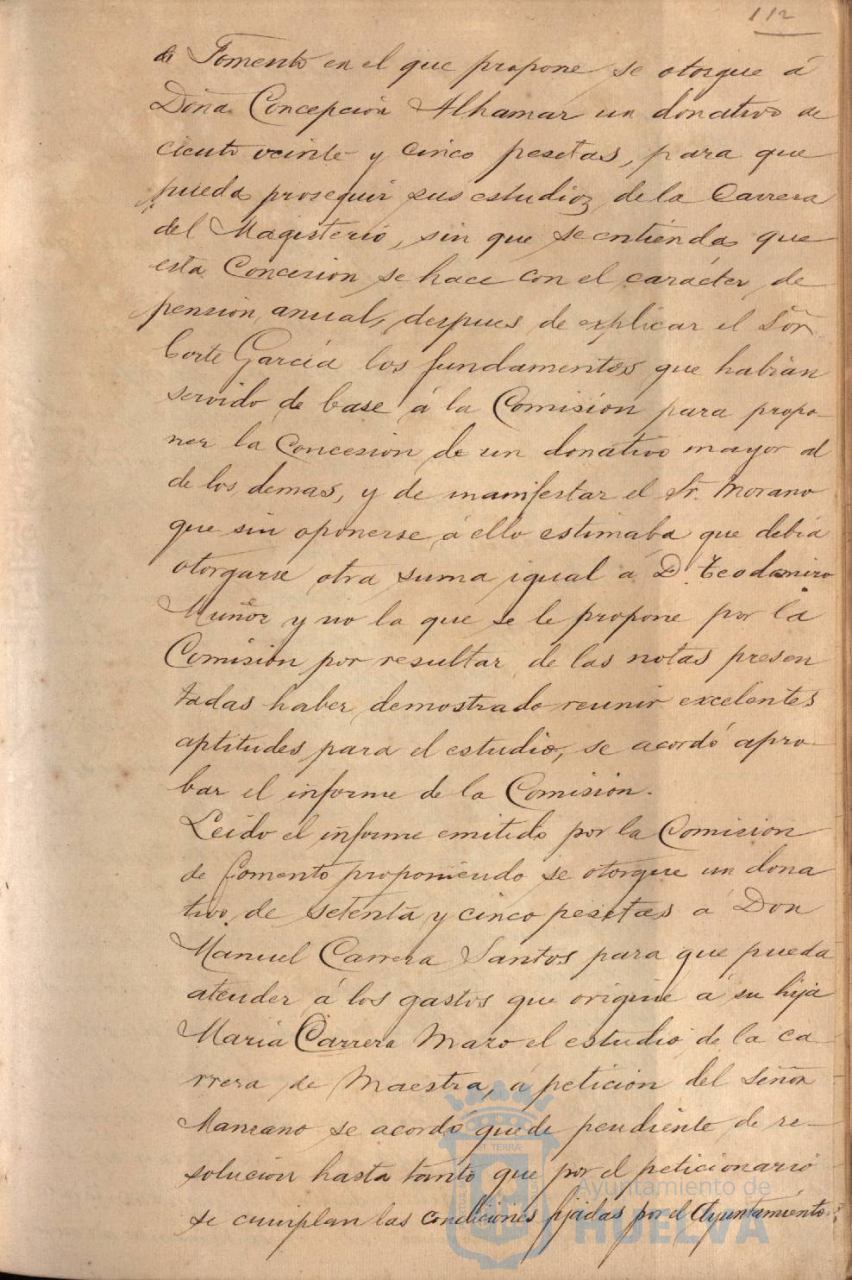 112
de Fomento en el que propone se otorgue á
Doña Concepción Alhamar un donativo de
ciento veinte y cinco pesetas, para que
pueda proseguir sus estudios de la Carrera
del Magisterio, sin que se entienda que
esta Concesion se hace con el carácter de
pensión anual, despues de explicar el Sõr
Corte García los fundamentos que habian
servido de base á la Comisión para propo-
ner la Concesion de un donativo mayor al
de los demas, y de manifestar el Sr. Morano
que sin oponerse á ello estimaba que debia
otorgarse otra suma igual á D. Teodomiro
Muñoz y no la que se le propone por la
Comisión por resultar de las notas presen
tadas haber demostrado reunir excelentes
aptitudes para el estudio, se acordó apro-
bar el informe de la Comisión.
Leido el informe emitido por la Comision
de fomento proponiendo se otorgue un dona
tivo de setenta y cinco pesetas a Don
Manuel Carrera Santos para que pueda
atender á los gastos que origine á su hija
María Carrera Maro el estudio de la ca-
rrera de Maestra, á petición del Señor
Manzano se acordó quede pendiente de re-
solución hasta tanto que por el peticionario
se cumplan las condiciones fijadas por el Ayuntamiento.
Ayuntamiento de
HUELVA